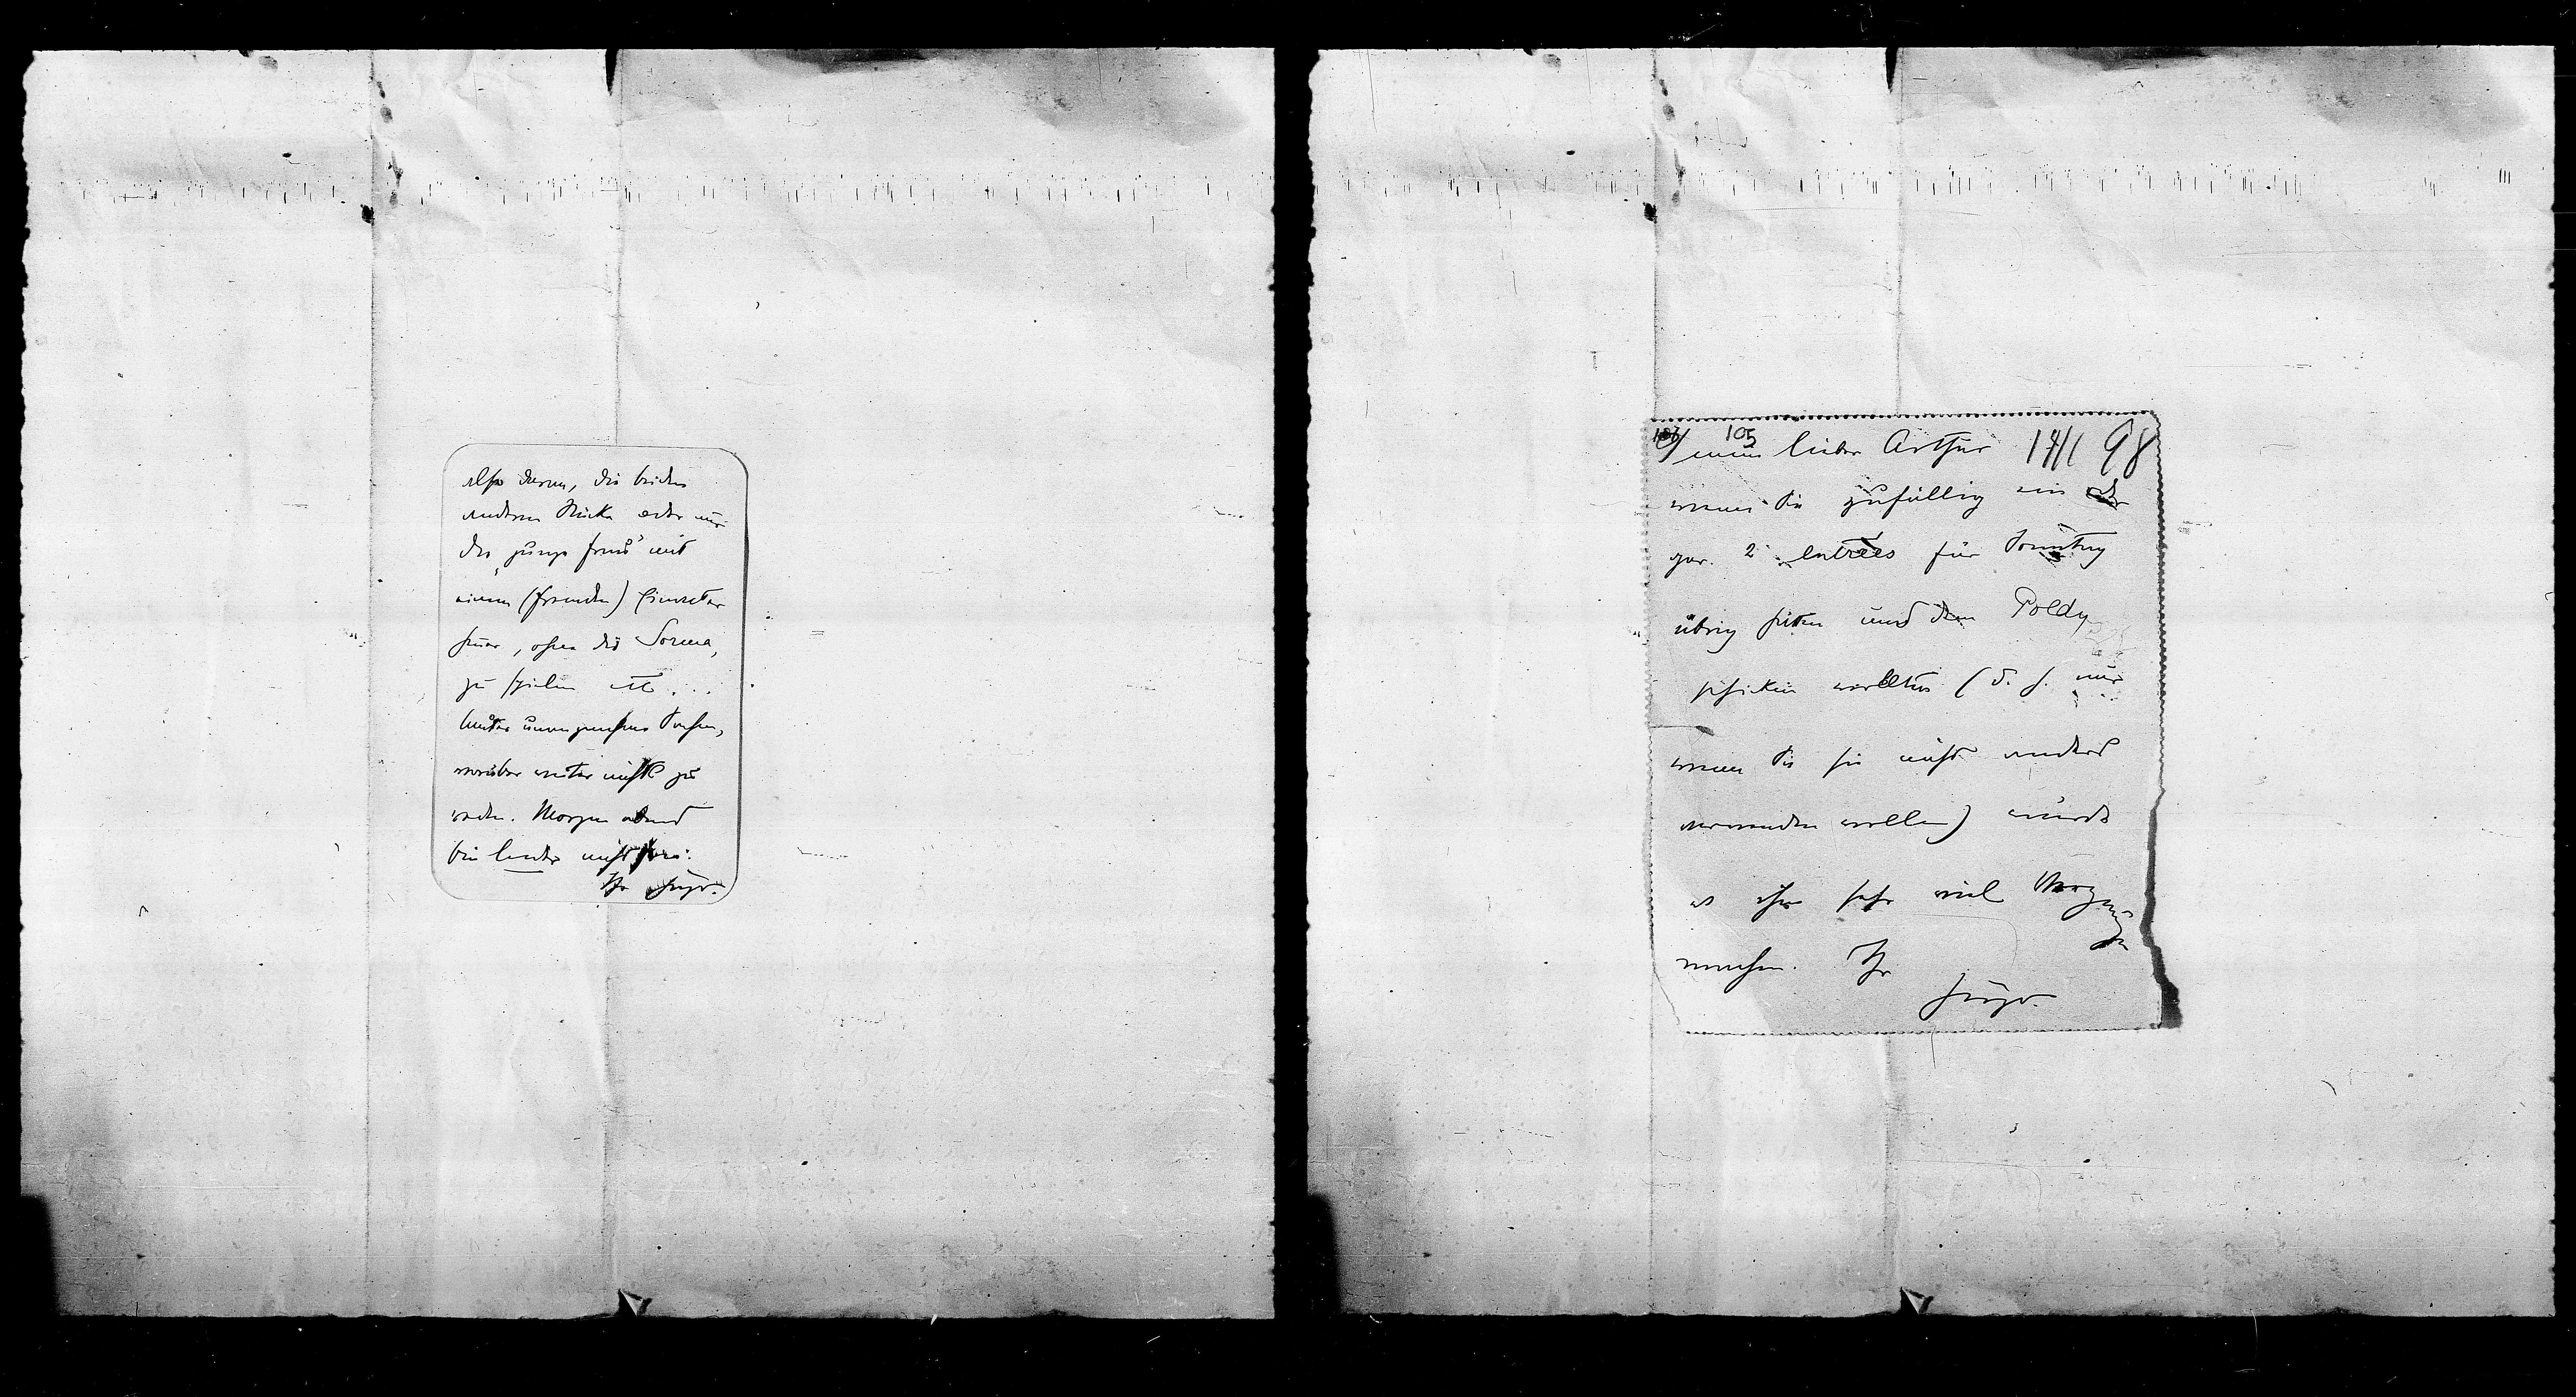 also darum, die beiden
anderen Stücke oder nur
die „junge Frau“ mit
einem (fremden) Einacter
heuer, ohne die Sorma,
zu spielen etc. . .
lauter unangenehme Sachen,
worüber weiter nichts zu
reden. Morgen abend
bin leider nicht frei.
Ihr Hugo.
105
mein lieber Arthur 14/1 98
wenn Sie zufällig ein oder
gar 2 entrées für Sonntag
übrig hätten und dem Poldy
schicken wollten (d. h. nur
wenn Sie sie nicht anders
verwenden wollen) würde
es ihm sehr viel Vergnügen
machen. Ihr
Hugo.